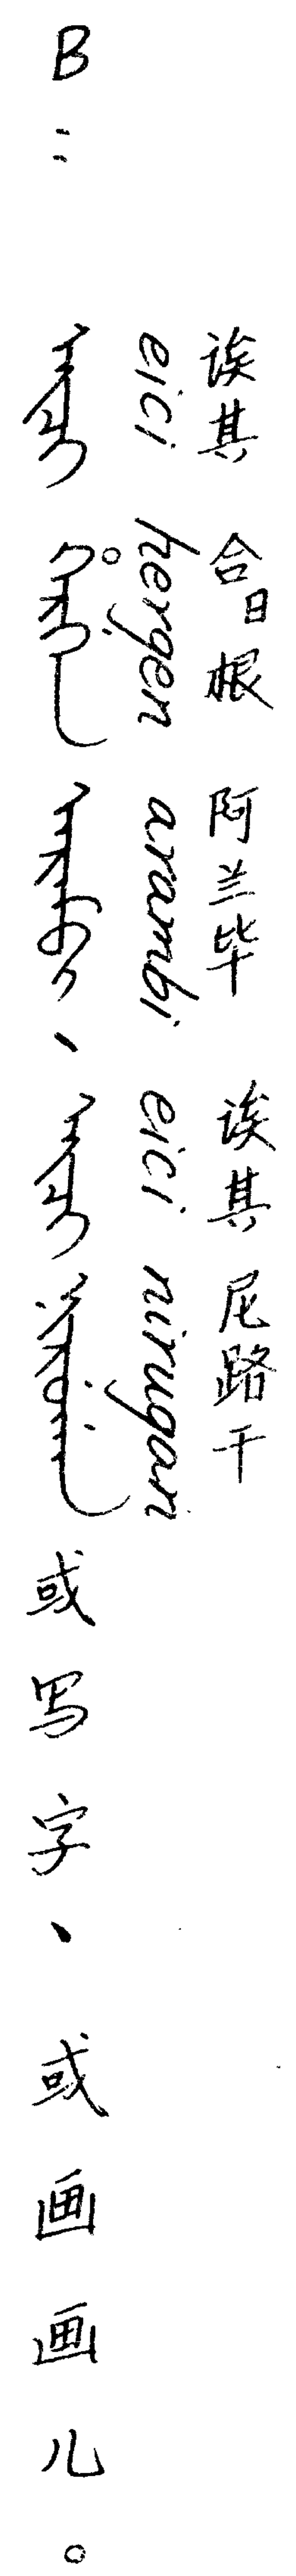 B: ᡝᡳᠴᡳ ᡥᡝᡵᡤᡝᠨ ᠠᡵᠠᠮᠪᡳ、ᡝᡳᠴᡳ ᠨᡳᡵᡠᡤᠠᠨ 或写字、或画画儿。
eici hergen arambi eici nirugan
诶其 合日根 阿兰毕 诶其 尼路干